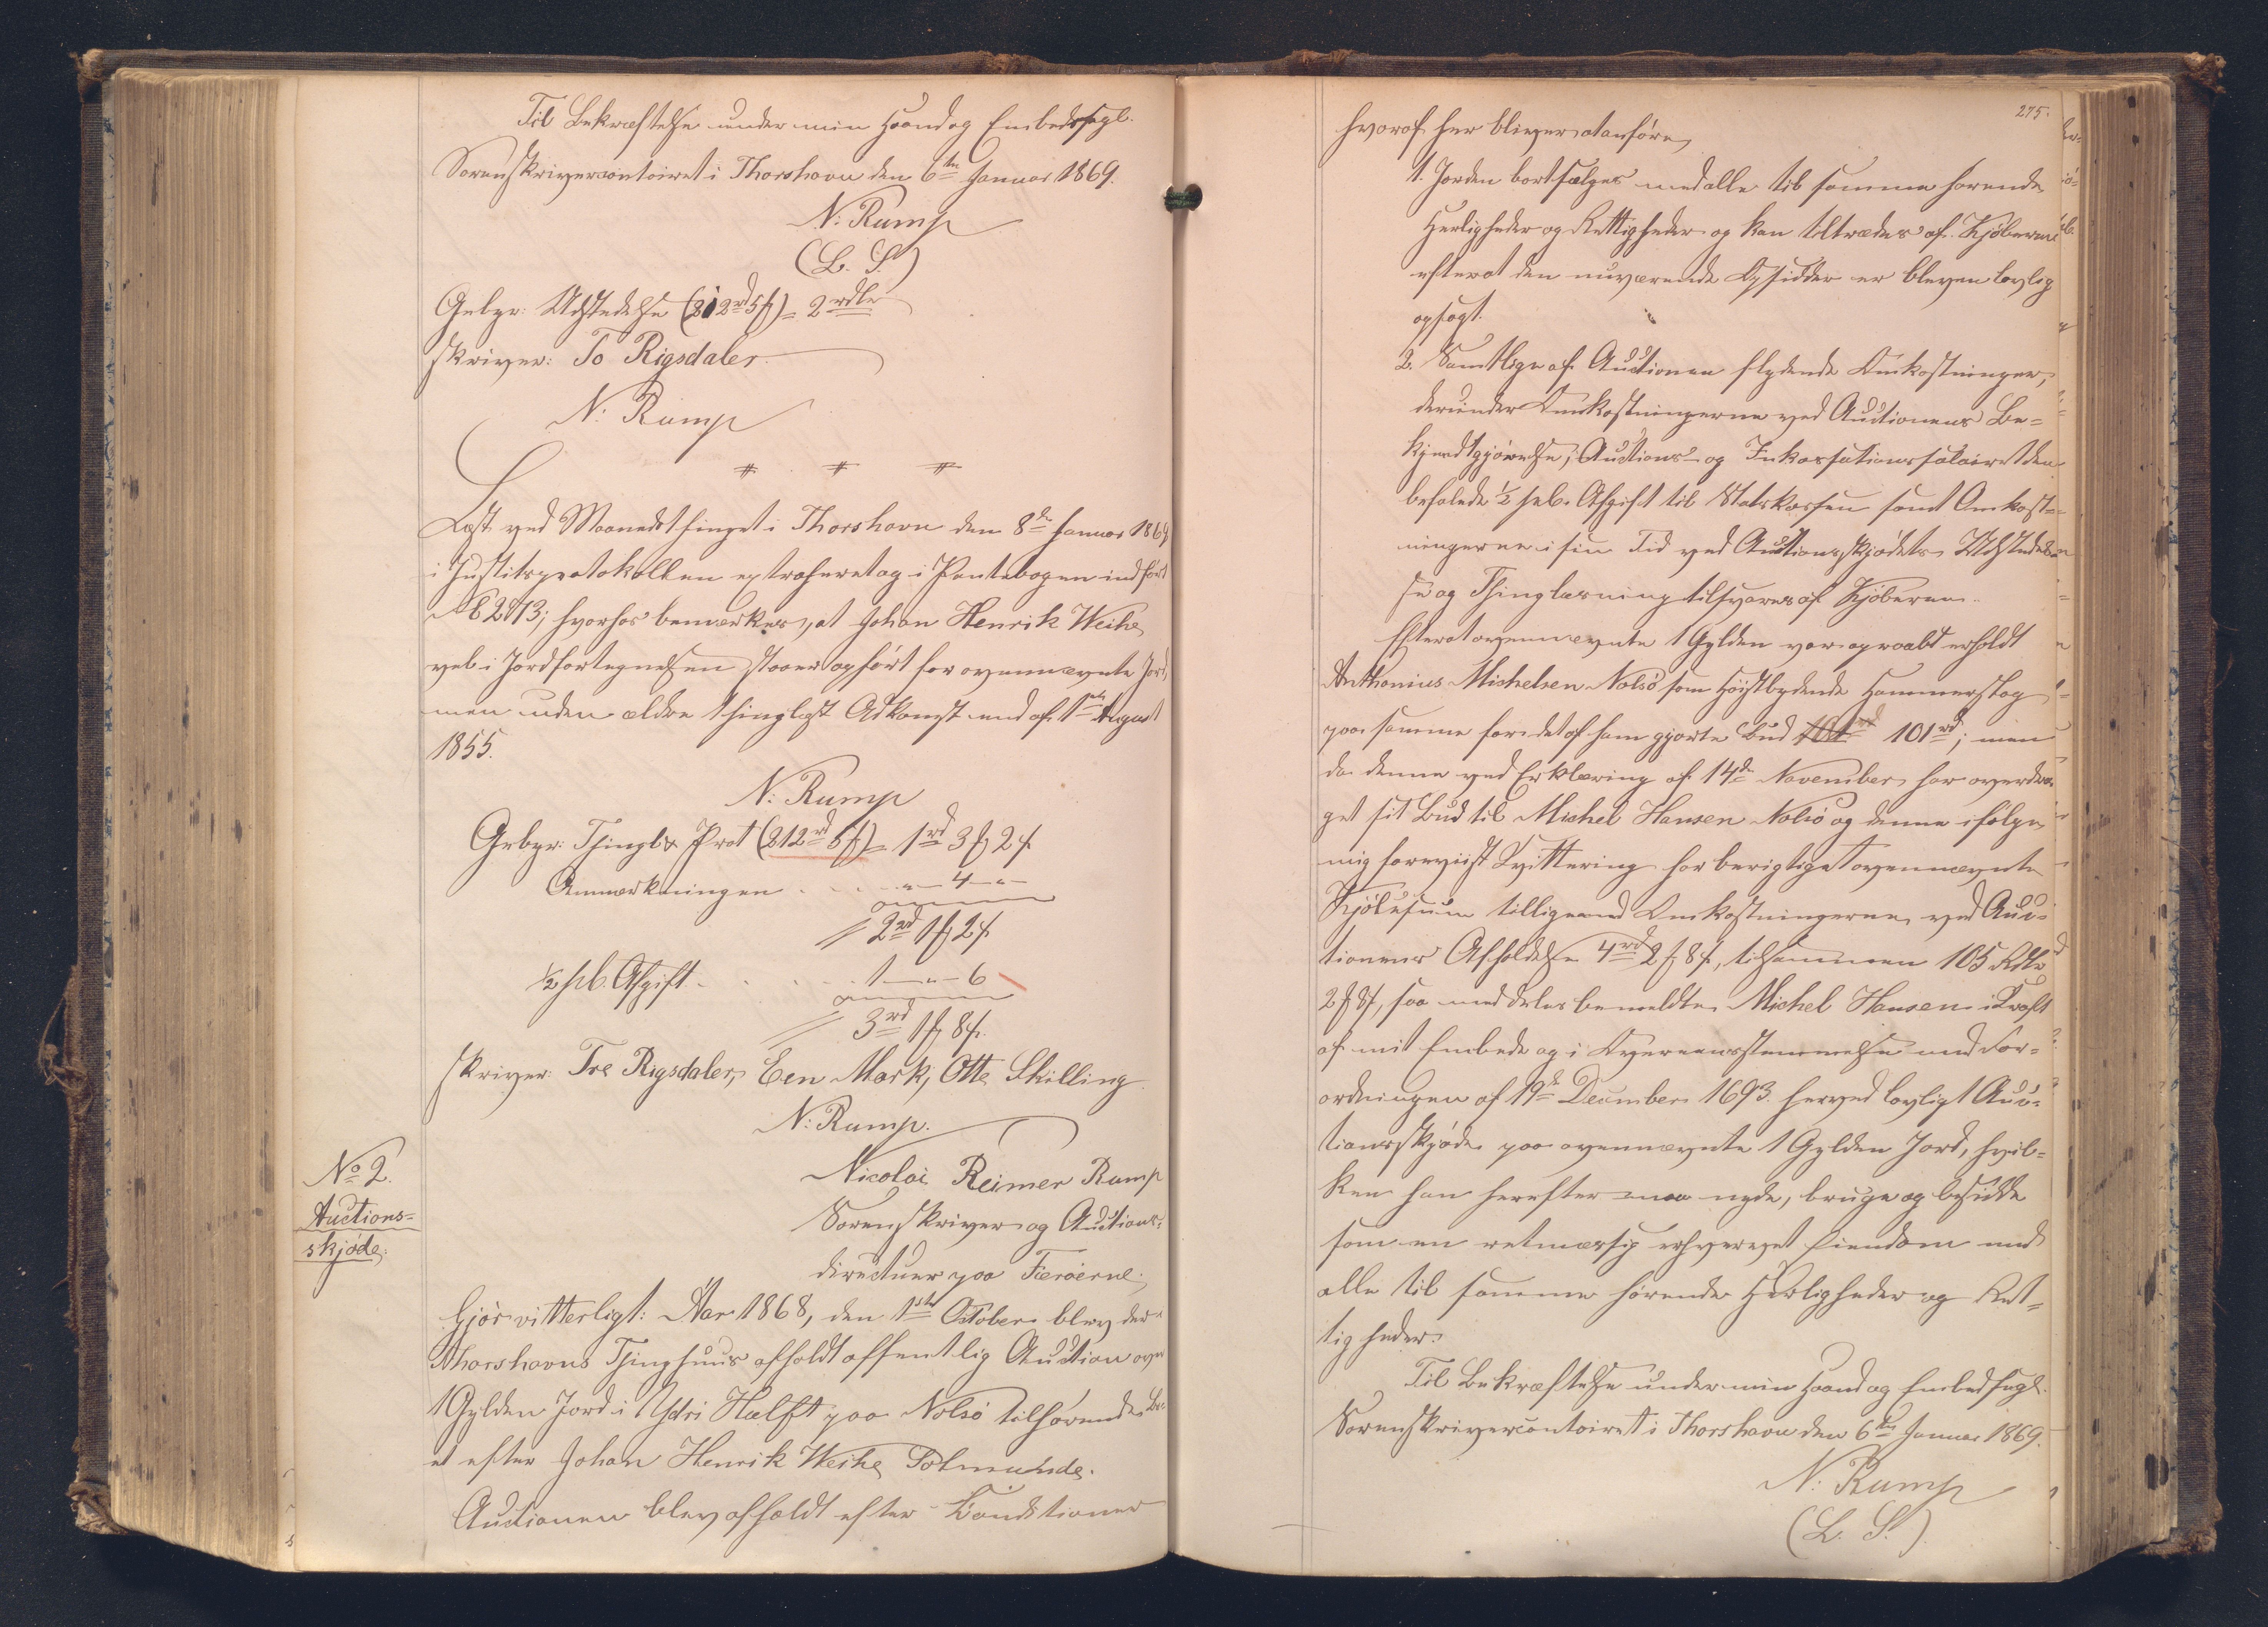 Til Bekræftelse under min Haand og Embedssegl.
Sorenskrivercontoiret i Thorshavn den 6te Januar 1869.
N. Rump
(L. S.)
Gebyr: Udstedelse (212rd 5f) = 2 rdlr
skriver: To Rigsdaler.
N. Rump
Læst ved Maanedsthinget i Thorshavn den 8de Januar 1869
i Justitsprotokollen extraheret og i Pantebogen indført
hvorhos bemærkes, at Johan Henrik Weihe
vel i Jordfortegnelsen staaer opført for ovennævnte Jord,
men uden ældre thinglæst Adkomst end af 1ste August
1855.
N. Rump
Gebyr: Thingl. & Prot (212rd 5f) = 1rd 3f 2s
Anmærkningen . . . . „ 4 „
2rd 1f 2s
½ pCt. Afgift . . . 1 „ 6
3rd 1f 8s.
skriver: Tre Rigsdaler, Een Mark, Otte Skilling.
N. Rump.
No 2.
Auctions-
skjøde.
Nicolai Reimer Rump
Sorenskriver og Auctions-
directeur paa Færøerne,
Gjør vitterligt: Aar 1868, den 1ste October blev der i
Thorshavns Thinghuus afholdt offentlig Auction over
1 Gylden Jord i Ydri Hælft paa Nolsø tilhørende Bo-
et efter Johan Henrik Weihe
Auctionen blev afholdt efter Conditioner
275.
hvoraf her bliver at anføre,
1. Jorden bortsælges med alle til samme hørende
Herligheder og Rettigheder og kan tiltrædes af Kjøberen
efterat den nuværende Opsidder er bleven lovlig
opsagt.
2. Samtlige af Auctionen flydende Omkostninger,
derunder Omkostningerne ved Auctionens Be-
kjendtgjørelse, Auctions- og Inkassationssalairet den
befalede ½ pCt. Afgift til Statskassen samt Omkost-
ningerne i sin Tid ved Auctionsskjødets Udstedel-
se og Thinglæsning tilsvares af Kjøberen.
Efterat ovennævnte 1 Gylden var opraabt erholdt
Anthonius Michelsen Nolsø som Høistbydende Hammerslag
paa samme for det af ham gjorte Bud 101rd; men
da denne ved Erklæring af 14de November har overdra-
get sit Bud til Michel Hansen Nolsø og denne ifølge
mig foreviist Qvittering har berigtiget ovennævnte
Kjøbesum tilligemed Omkostningerne ved Auc-
tionens Afholdelse 4rd 2f 8s, tilsammen 105 Rdlr
2f 8s, saa meddeles bemeldte Michel Hansen i Kraft
af mit Embede og i Overeensstemmelse med For-
ordningen af 19de December 1693 herved lovligt Auc-
tionsskjøde paa ovennævnte 1 Gylden Jord, hvil-
ken han herefter maa nyde, bruge og besidde
som en retmæssig erhvervet Eiendom med
alle til samme hørende Herligheder og Ret-
tigheder.
Til Bekræftelse under min Haand og Embedssegl.
Sorenskrivercontoiret i Thorshavn den 6te Januar 1869.
N. Rump
(L. S.)